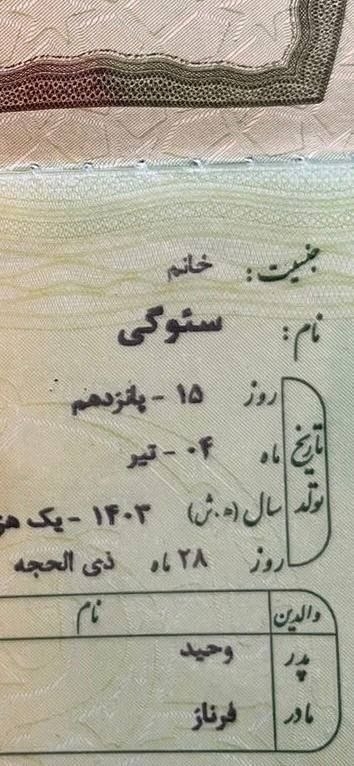 جنسیت: خانم
نام: ستوگی
تاریخ تولد
روز ۱۵ - پانزدهم
ماه ۰۴ - تیر
سال (ه.ش) ۱۴۰۳ - یک
روز ۲۸ ماه ذی الحجه
والدین نام
پدر وحید
مادر فرناز